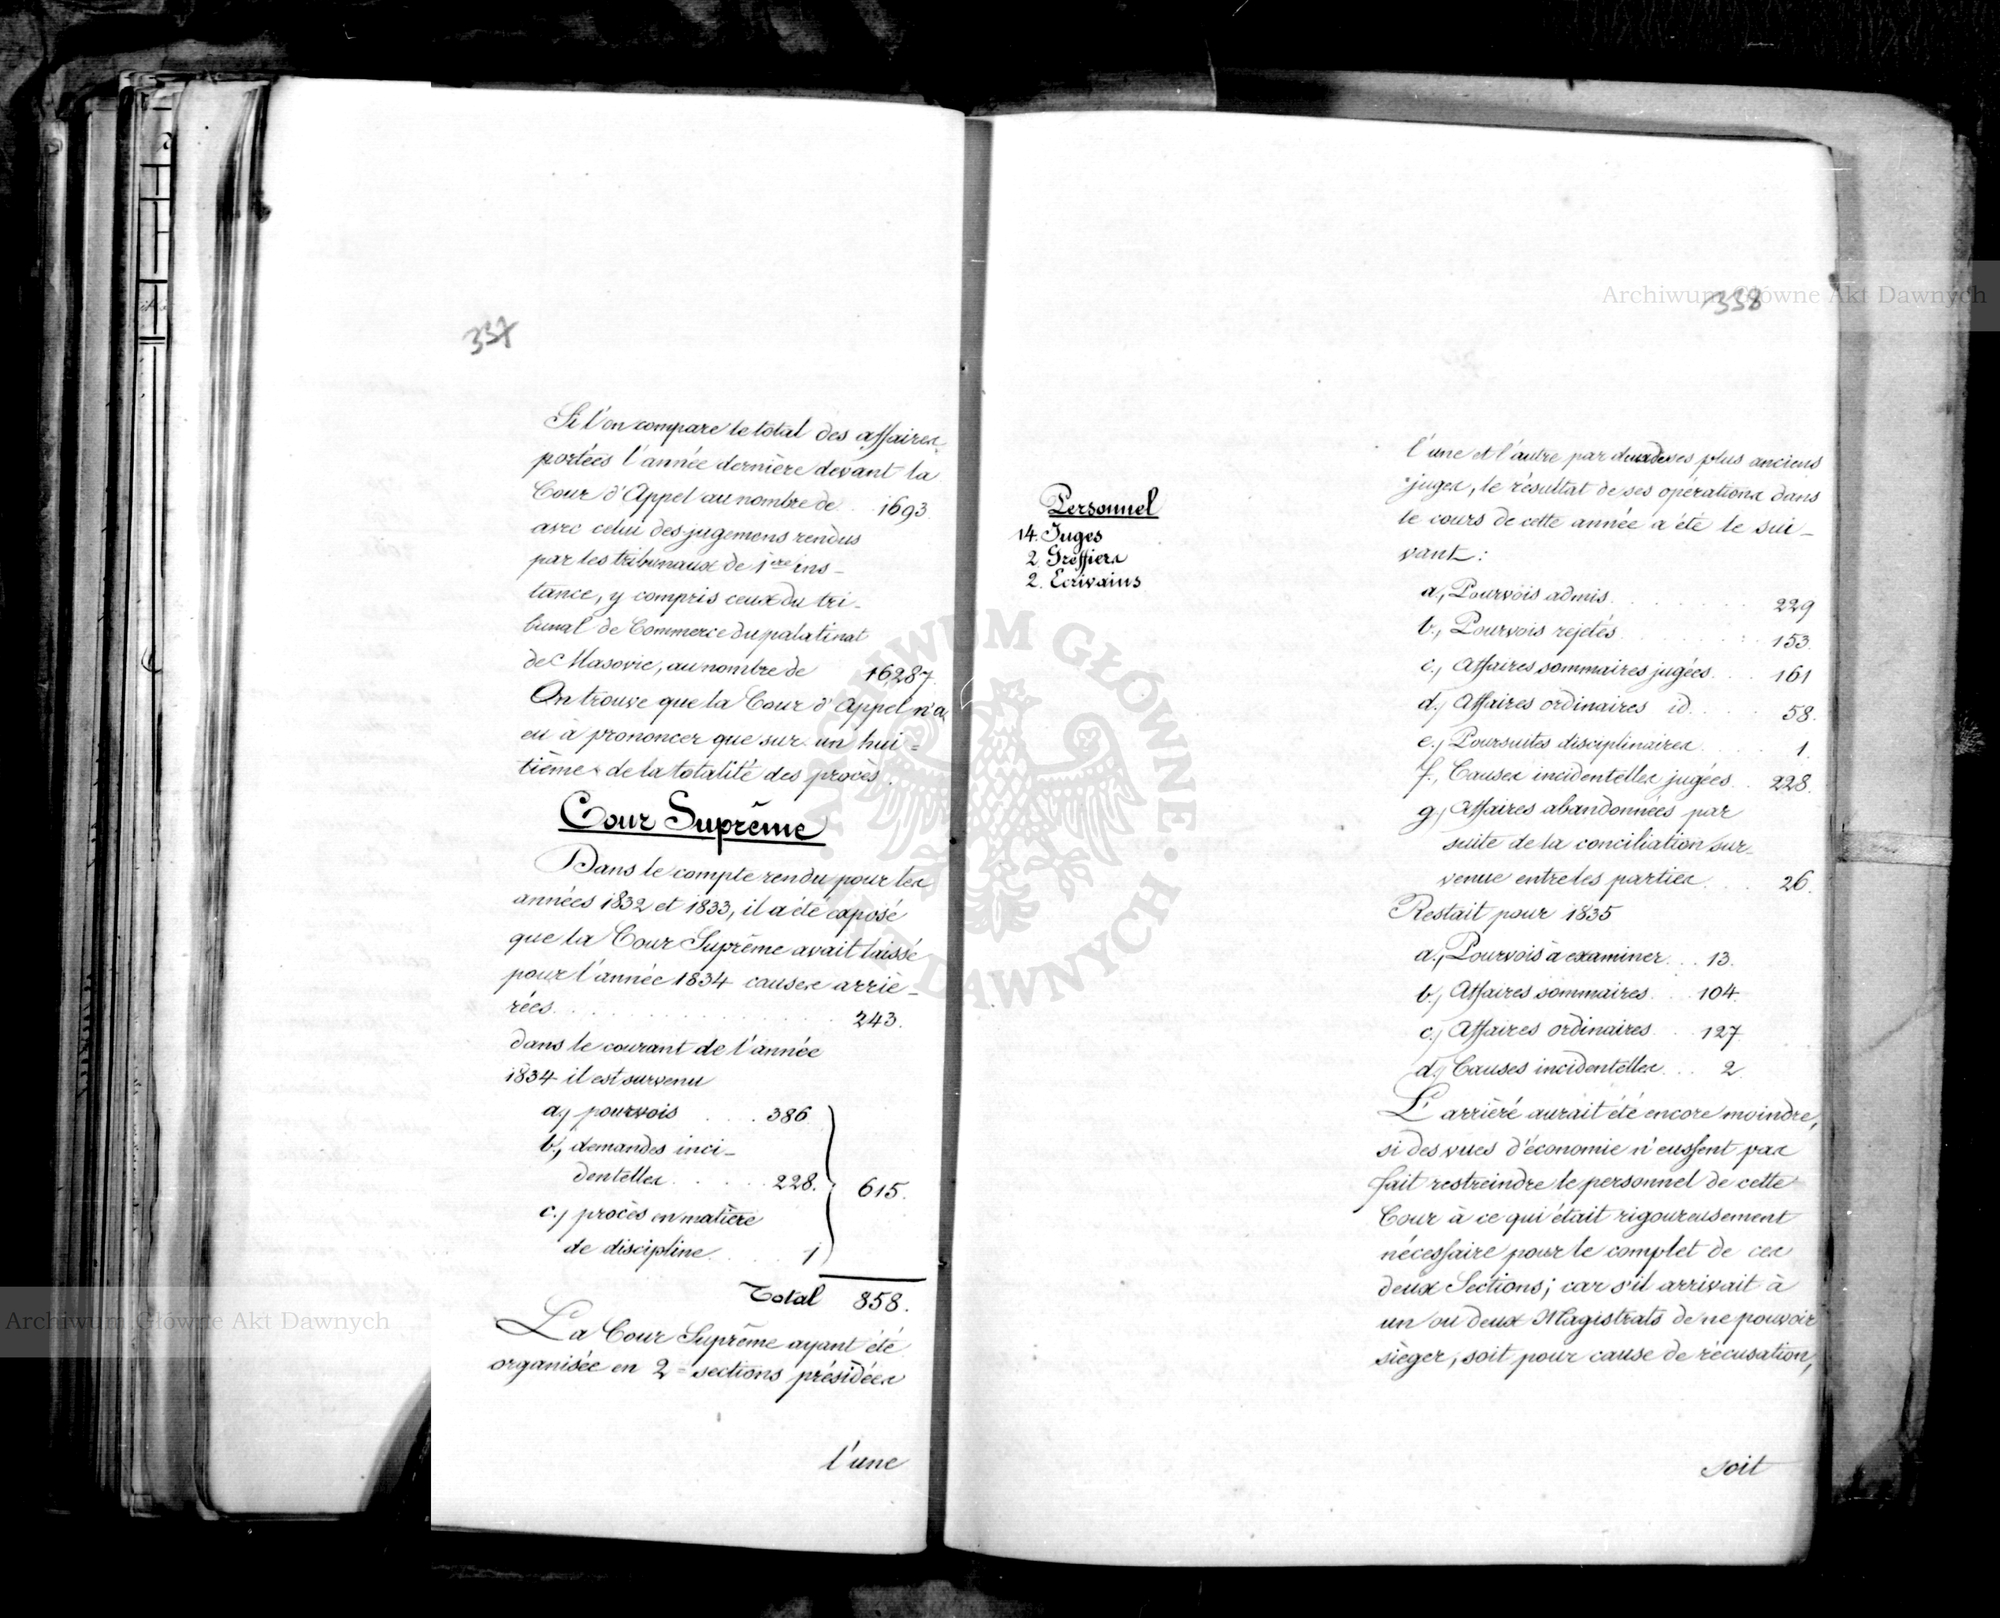 337
Si l'on compare le total des affaires
portées l'année dernière devant la
Cour d'Appel au nombre de . 1693.
avec celui des jugemens rendus
par les tribunaux de 1ère ins-
tance, y compris ceux du tri-
bunal de Commerce du palatinat
de Masovie, au nombre de 16,287.
On trouve que la Cour d'Appel n'a
eu à prononcer que sur un hui=
tième de la totalité des procès.
Cour Suprême
Dans le compte rendu pour les
années 1832 et 1833, il a été exposé
que la Cour Suprême avait laissé
pour l'année 1834 causes arrié-
rées. . . . . . . . . . 243.
dans le courant de l'année
1834 il est survenu
a.) pourvois . . . . 386.
b.) demandes inci-
dentelles . . . . . 228. 615.
c.) procès en matière
de discipline . . . 1
Total 858.
La Cour Suprême ayant été
organisée en 2= sections présidées
l'une
338
Personnel
14. Juges
2. Greffiers
2. Ecrivains
l'une et l'autre par deux de ses plus anciens
juges, le résultat de ses opérations dans
le cours de cette année a été le sui-
vant:
a.) Pourvois admis . . . . . . 229
b.) Pourvois rejetés . . . . . . 153.
c.) Affaires sommaires jugées . . . 161
d.) Affaires ordinaires id. . . . 58.
e.) Poursuites disciplinaires . . . . 1.
f.) Causes incidentelles jugées . . 228.
g.) Affaires abandonnées par
suite de la conciliation sur-
venue entre les parties . . . 26.
Restait pour 1835
a.) Pourvois à examiner . . . 13.
b.) Affaires sommaires . . . 104.
c.) Affaires ordinaires . . . 127
d.) Causes incidentelles . . . 2.
L'arriéré aurait été encore moindre,
si des vues d'économie n'eussent pas
fait restreindre le personnel de cette
Cour à ce qui était rigoureusement
nécessaire pour le complet de ces
deux Sections; car s'il arrivait à
un ou deux Magistrats de ne pouvoir
siéger, soit pour cause de récusation,
soit
Archiwum Główne Akt Dawnych
Archiwum Główne Akt Dawnych
ARCHIWUM GŁÓWNE AKT DAWNYCH